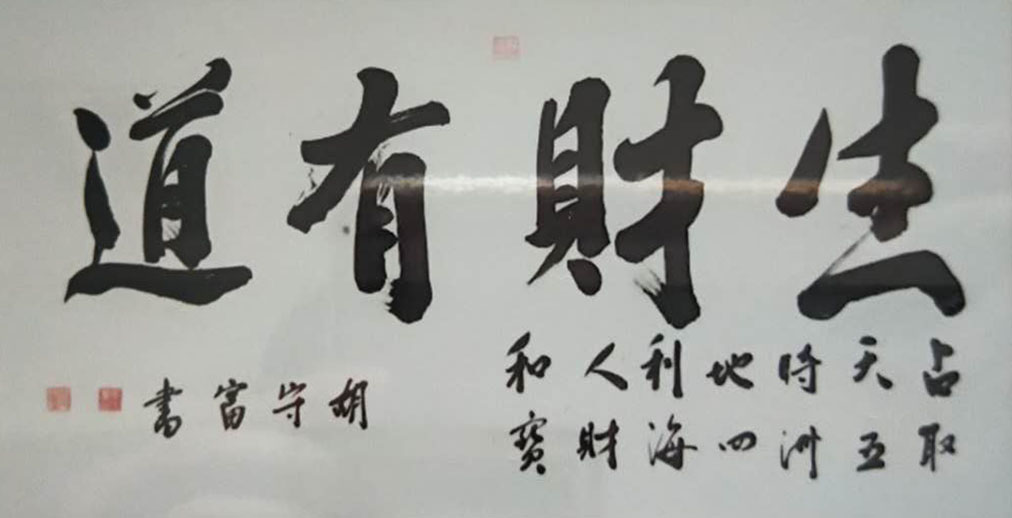 生財有道
占天時地利人和
取五洲四海財寶
胡守富書